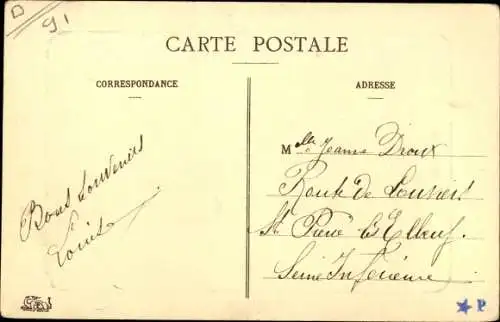 D
91
CARTE POSTALE
CORRESPONDANCE
ADRESSE
Bons souvenirs
Louis
Mlle Jeanne Droux
Route de Louviers
St Pierre les Elbeuf.
Seine Inférieure
P